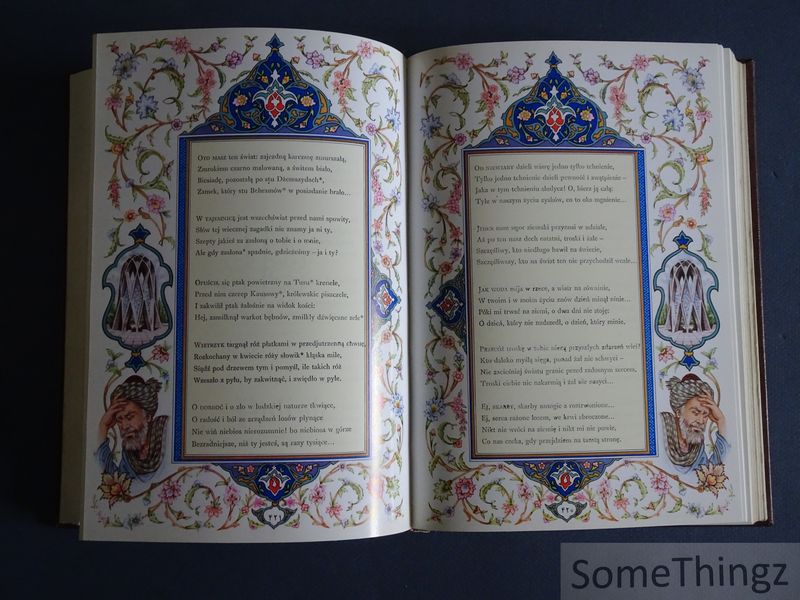 OTO MASZ ten świat: zajezdną karczmę zmurszałą,
Zmrokiem czarno malowaną, a świtem biało,
Biesiadę, pozostałą po stu Dżemszydach*,
Zamek, który stu Behramów* w posiadanie brało...
W TAJEMNICĘ jest wszechświat przed nami spowity,
Słów tej wiecznej zagadki nie znamy ja ni ty,
Szepty jakieś za zasłoną o tobie i o mnie,
Ale gdy zasłona* spadnie, gdzieżeśmy – ja i ty?
OPUŚCIŁ się ptak powietrzny na Tusu* krenele,
Przed nim czerep Kausowy*, królewskie piszczele,
I zakwilił ptak żałośnie na widok kości:
Hej, zamilknął warkot bębnów, zmilkły dźwięczne trele*
WIETRZYK targnął róż płatkami w przedjutrzenną chwilę,
Rozkochany w kwiecie róży słowik* kląska mile,
Siądź pod drzewem tym i pomyśl, ile takich róż
Wstało z pyłu, by zakwitnąć, i zwiędło w pyle.
O dobroć i o zło w ludzkiej naturze tkwiące,
O radość i ból ze zrządzeń losów płynące
Nie wiń niebios nierozumnie! bo niebiosa w górze
Bezradniejsze, niż ty jesteś, są razy tysiące...
٢٢١
OD NIEWIARY dzieli wiarę jedno tylko tchnienie,
Tylko jedno tchnienie dzieli pewność i zwątpienie –
Jaka w tym tchnieniu słodycz! O, bierz ją całą:
Tyle w naszym życiu zysków, co to oka mgnienie...
ziemski przynosi w udziale,
Aż po ten nasz dech ostatni, troski i żale –
Szczęśliwy, kto niedługo bawił na świecie,
Szczęśliwszy, kto na świat ten nie przychodził wcale...
JAK WODA mija w rzece, a wiatr na równinie,
W twoim i w moim życiu znów dzień minął ninie...
Póki mi trwać na ziemi, o dwa dni nie stoję:
O dzień, który nie nadszedł, o dzień, który minie.
w tobie nieci przyszłych zdarzeń wieść?
Kto daleko myślą sięga, ponad żal nie uchwyci –
Nie zacieśniaj świata granic przed zadumą serca,
Troski ciebie nie nakarmią i żal nie nasyci...
Ej, skarby mnogie a roztrwonione...
Ej, serca rażone losem, we krwi zbroczone...
Nikt nie wróci na ziemię i nikt mi nie powie,
Co nas czeka, gdy przejdziem na tamtą stronę.
٢٢٠
SomeThingz